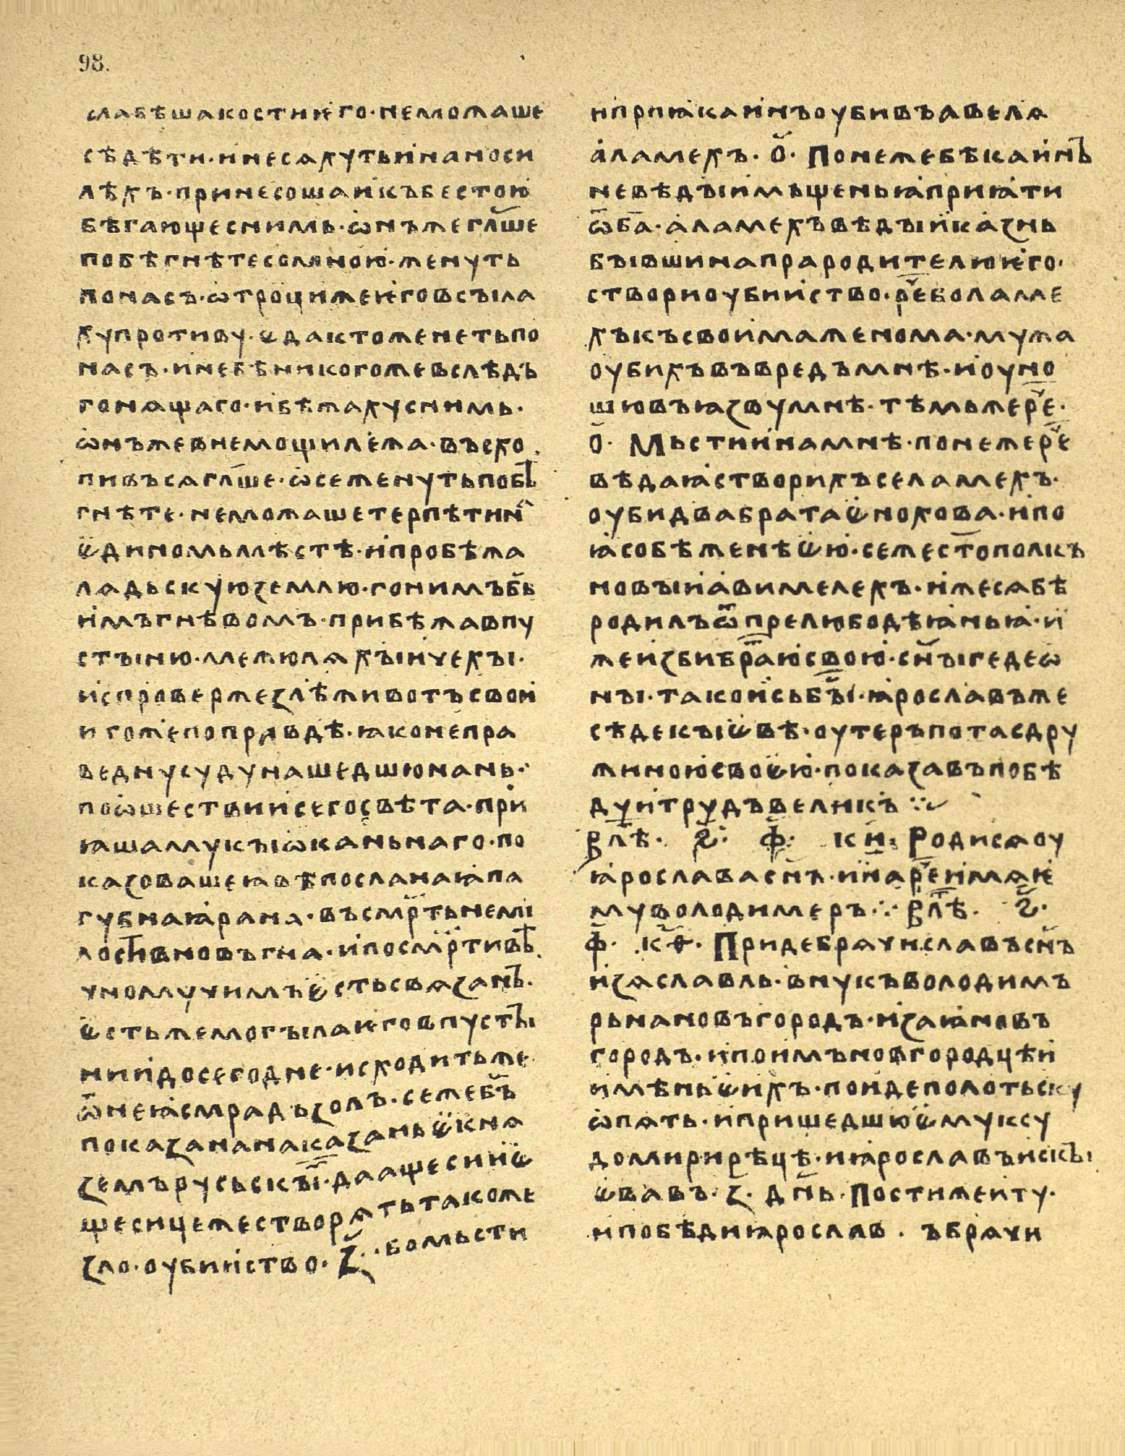 98.
слабѣшакостиѥго·неможаше
сѣдѣти·инесѧхутьинаноси
лѣхъ·принесошаикъбестою
бѣгающеснимь·ѡнъжегл҃ше
побѣгнѣтесомною·женуть
понасъ·ѡтроцижеѥговсъıла
хупротиву·єдактоженетьпо
насъ·инебѣникогожевслѣдъ
гонѧщаго·ибѣжахуснимь·
ѡнъжевнемощилежа·въсхо
пивъсѧгл҃ше·ѡсеженутьпобѣ
гнѣте·неможашетерпѣтин
єдиномьмѣстѣ·ипробѣжа
лѧдьскуюземлю·гонимъбь҃
имъгнѣвомъ·прибѣжавпу
стъıню·межюлѧхъıичехъı·
испровержезлѣживотъсвои
и гожепоправдѣ·ꙗконепра
веднусудунашедшюнань·
поѡшествиисегосвѣта·при
ꙗшамукъıѡканьнаго·по
казовашеꙗвѣпосланаꙗпа
губнаꙗрана·въсмр҃тьнемі
лостивновъгна·ипосмр҃тивѣ
чномучимъєстьсвѧзанъ·
єстьжемогъılаѥговпустъı
нииидосегодне·исходитьже
ѿнеꙗсмрадъзолъ·сежебъ҃
показананаказаньєкнѧ
земърусьскъı҃·даащесииє
щесицежестворѧтьтакоже
зло·оубииство·з҃·бомьсти
ипрпꙗкаинъоубивъавелѧ
аламехъ·о҃·Понежебѣкаинъ
невѣдъıимьщеньꙗприꙗти
ѿба҃·аламехъвѣдъıиказнь
бъıвшинапрародителюѥго·
створиоубииство·ре҃боламе
хъкъсвоимаженома·мужа
оубихъвъвредъмнѣ·иоуно
шювъꙗзвумнѣ·тѣмьжере҃·
о҃· Мьстиинамнѣ·понежере҃
вѣдаꙗстворихъселамехъ·
оубидвабратаєнохова·ипо
ꙗсобѣженѣєю·сежест҃ополкъ
новъıиавимелехъ·ижесѧбѣ
родилъѿпрелюбодѣꙗньꙗ·и
жеизбибра҃ююсвою·сн҃ъıгедеѡ
нъı·такоисьбъı҃·ꙗрославъже
сѣдекъıєвѣ·оутеръпотасдру
жиноюсвоєю·показавъпобѣ
дуитрудъвеликъ ჻
Влѣ҃· ҂ѕ҃· ф҃· ки҃· Родисѧоу
ꙗрославасн҃ъ·инаре҃имѧѥ
муволодимеръ჻ Влѣ҃· ҂ѕ҃·
ф҃· кѳ҃· Придебрѧчиславъсн҃ъ
изѧславль·внукъволодимѣ
рьнановъгородъ·изаꙗновъ
городъ·ипоимъновгородцѣи
имѣньєихъ·поидеполотьску
ѡпѧть·ипришедшюємуксу
домирирѣцѣ·иꙗрославъискъı
євавъ·з҃·дн҃ь·Постижеиту·
ипобѣдиꙗрослав · ъбрѧчи